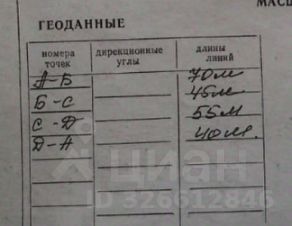 МАСШ
ГЕОДАННЫЕ
номера точек дирекционные углы длины линий
А-Б 70м
Б-С 45м
С-Д 55м
Д-А 40м.
циан
ID 326612846